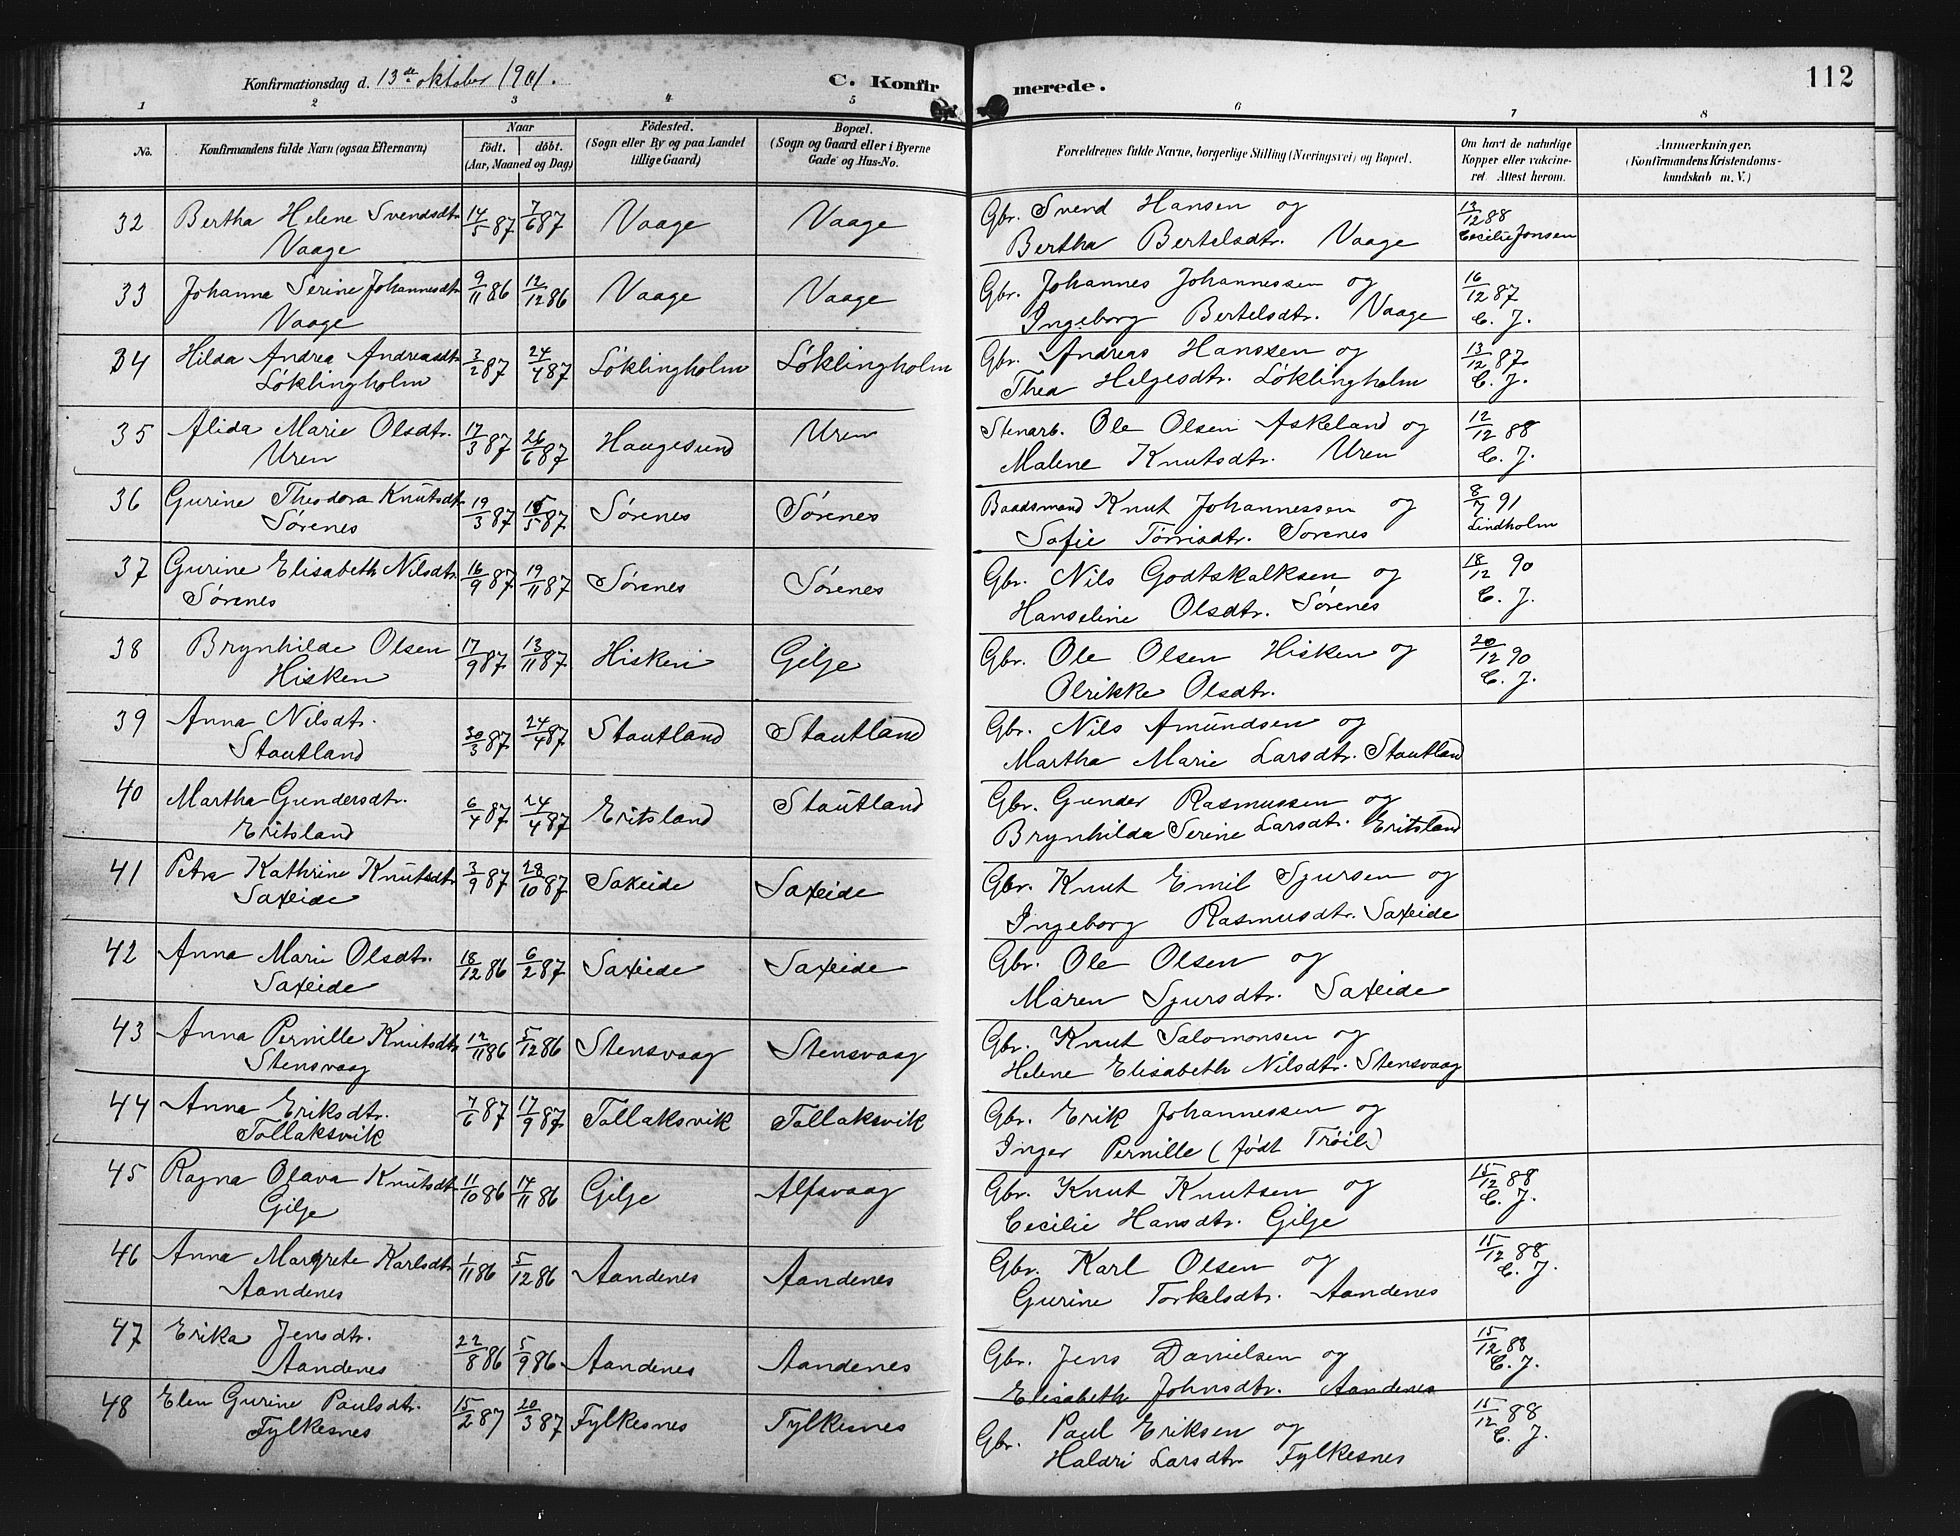 Konfirmationsdag d. 13de oktober 1901. C. Konfirmerede. 112
1 2 3 4 5 6 7 8
No. Konfirmandens fulde Navn (ogsaa Efternavn) Naar födt. döbt. (Aar, Maaned og Dag) Födested. (Sogn eller By og paa Landet tillige Gaard) Bopæl. (Sogn og Gaard eller i Byerne Gade og Hus-No. Forældrenes fulde Navne, borgerlige Stilling (Næringsvei) og Bopæl. Om havt de naturlige Kopper eller vakcineret. Attest herom. Anmærkninger. (Konfirmandens Kristendomskundskab m. V.)
32 Bertha Helene Svendsdtr. 14/5 87 7/6 87 Vaage Vaage Gbr. Svend Hansen og 13/12 88
Vaage Bertha Bertelsdtr. Vaage Cecilie Jonsen
33 Johanna Serine Johannesdtr 9/11 86 12/12 86 Vaage Vaage Gbr. Johannes Johannessen og 16/12 87
Vaage Ingeborg Bertelsdtr. Vaage C. J.
34 Hilda Andrea Andreasdtr 3/2 87 24/4 87 Løklingholm Løklingholm Gbr. Andreas Hanssen og 13/12 87
Løklingholm Thea Helgesdtr. Løklingholm C. J.
35 Alida Marie Olsdtr. 17/3 87 26/6 87 Haugesund Uren Stenarb. Ole Olsen Askeland og 12/12 88
Uren Malene Knutsdtr. Uren C. J.
36 Gurine Theodora Knutsdtr 19/3 87 15/5 87 Sørenes Sørenes Baadsmand Knut Johannessen og 8/7 91
Sørenes Sofie Torrisdtr. Sorenes Lindholm
37 Gurine Elisabeth Nilsdtr. 16/9 87 19/11 87 Sørenes Sørenes Gbr. Nils Godtskalksen og 18/12 90
Sørenes Hanseline Olsdtr. Sørenes C. J.
38 Brynhilde Olsen 17/9 87 13/11 87 Hisken Gilje Gbr. Ole Olsen Hisken og 20/12 90
Hisken Olrikke Olsdtr. C. J.
39 Anna Nilsdtr. 30/3 87 24/4 87 Stautland Stautland Gbr. Nils Amundsen og
Stautland Martha Marie Larsdtr. Stautland
40 Martha Gundersdtr. 6/4 87 24/4 87 Eritsland Stautland Gbr. Gunder Rasmussen og
Eritsland Brynhilda Serine Larsdtr. Eritsland
41 Petra Kathrine Knutsdtr 3/9 87 28/10 87 Sakeide Saxeide Gbr. Knut Emil Sjursen og
Saxeide Ingeborg Rasmusdtr. Saxeide
42 Anna Marie Olsdtr. 18/12 86 6/2 87 Saxeide Saxeide Gbr. Ole Olsen og
Saxeide Maren Sjursdtr. Saxeide
43 Anna Pernille Knutsdtr 12/11 86 5/12 86 Stensvaag Stensvaag Gbr. Knut Salomonsen og
Stensvaag Helene Elisabeth Nilsdtr. Stensvaag
44 Anna Eriksdtr. 7/6 87 17/9 87 Tollaksvik Tollaksvik Gbr. Erik Johannessen og
Tollaksvik Inger Pernille (født Trøil)
45 Ragna Olava Knutsdtr 11/10 86 14/11 86 Gilje Alfsvaag Gbr. Knut Knutsen og 15/12 88
Gilje Cecilie Hansdtr. Gilje C. J.
46 Anna Margrete Karlsdtr 1/11 86 5/12 86 Aandenes Aandenes Gbr. Karl Olsen og 15/12 88
Aandenes Gurine Torkelsdtr. Aandenes C. J.
47 Erika Jensdtr. 22/8 86 5/9 86 Aandenes Aandenes Gbr. Jens Danielsen og 15/12 88
Aandenes Elisabeth Johnsdtr. Aandenes C. J.
48 Elen Gurine Paulsdtr. 15/2 87 20/3 87 Fylkesnes Fylkesnes Gbr. Paul Eriksen og 15/12 88
Fylkesnes Haldri Larsdtr Fylkesnes C. J.